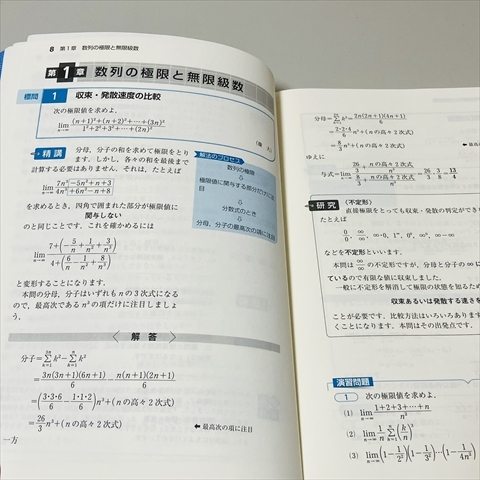 8 第1章 数列の極限と無限級数
第1章 数列の極限と無限級数
標問 1 収束・発散速度の比較
次の極限値を求めよ.
lim_{n→∞} ((n+1)²+(n+2)²+…+(3n)²)/(1²+2²+3²+…+(2n)²)
精講 分母,分子の和を求めて極限をとります.しかし,各々の和を最後まで
計算する必要はありません.それは,たとえば
lim_{n→∞} (7n³-5n²+n+3)/(4n³+6n²-n+8)
を求めるとき,四角で囲まれた部分が極限値に
関与しない
のと同じことです.これを確かめるには
lim_{n→∞} (7+(-5/n+1/n²+3/n³))/(4+(6/n-1/n²+8/n³))
と変形することになります.
本問の分母,分子はいずれもnの3次式になる
ので,最高次であるn³の項だけに注目しましょ
う.
解法のプロセス
数列の極限
⇩
極限値に関与する部分だけに注目
⇩
分数式のとき
⇩
分母,分子の最高次の項に注目
〈 解答 〉
分子=Σ_{k=1}^{3n} k²-Σ_{k=1}^{n} k²
=3n(3n+1)(6n+1)/6-n(n+1)(2n+1)/6
=(3・3・6/6-1・1・2/6)n³+(nの高々2次式)
=26/3 n³+(nの高々2次式) ← 最高次の項に注目
一方
分母=Σ_{k=1}^{2n} k²=2n(2n+1)(4n+1)/6
=2・2・4/6 n³+(nの高々2次式)
=8/3 n³+(nの高々2次式)
ゆえに
与式=lim_{n→∞} (26/3+(nの高々2次式)/n³)/(8/3+(nの高々2次式)/n³)=26/3・3/8=13/4
研究 〈不定形〉
直接極限をとっても収束・発散の判定ができ
たとえば
0/0, ∞/∞, ∞・0, 1^∞, 0⁰, ∞⁰, ∞-∞
などを不定形といいます.
本問は ∞/∞ の不定形ですが,分母と分子の∞に
ているので有限な値に収束しました.
一般に不定形を解消して極限の状態を知るため
収束あるいは発散する速さを
ことが必要です.比較方法はいろいろあります
くことになります.本問はその出発点です.
演習問題
1 次の極限値を求めよ.
(1) lim_{n→∞} (1+2+3+…+n)/n²
(2) lim_{n→∞} 1/n Σ_{k=1}^{n} (k/n)³
(3) lim_{n→∞} (1-1/2²)(1-1/3²)…(1-1/4n²)